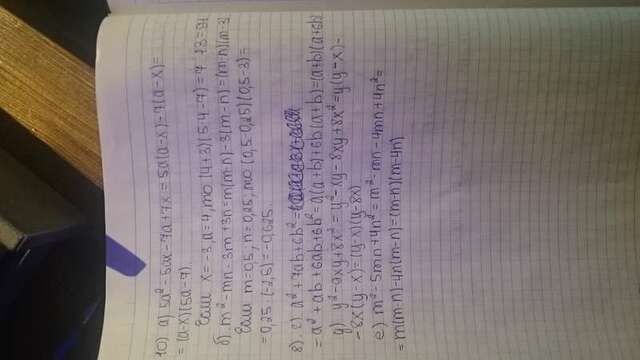 10) а) 5a² - 5ax - 7a + 7x = 5a(a-x) - 7(a-x) =
= (a-x)(5a-7)
Если x = -3, a = 4, то (4+3)(5·4-7) = 7·13 = 91
б) m² - mn - 3m + 3n = m(m-n) - 3(m-n) = (m-n)(m-3)
Если m=0,5, n=0,25, то (0,5-0,25)(0,5-3) =
= 0,25·(-2,5) = -0,625
8) с) a² + 7ab + 6b² =
= a² + ab + 6ab + 6b² = a(a+b) + 6b(a+b) = (a+b)(a+6b)
д) y² - 9xy + 8x² = y² - xy - 8xy + 8x² = y(y-x) -
- 8x(y-x) = (y-x)(y-8x)
е) m² - 5mn + 4n² = m² - mn - 4mn + 4n² =
= m(m-n) - 4n(m-n) = (m-n)(m-4n)